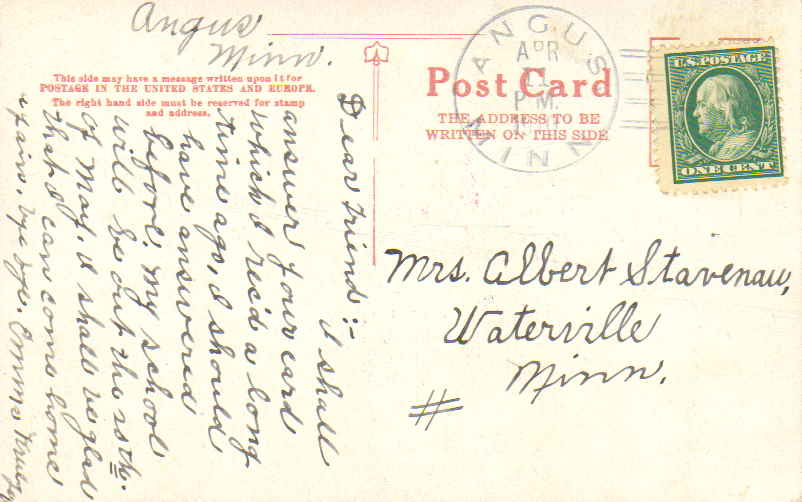 Angus
Minn.
This side may have a message written upon it for
POSTAGE IN THE UNITED STATES AND EUROPE.
The right hand side must be reserved for stamp
and address.
Dear Friend:-
I shall
answer your card
which I rec'd a long
time ago, I should
have answered
before. My school
will be out the 25th.
of May. I shall be glad
that I can come home
again. bye bye. Emma
Post Card
THE ADDRESS TO BE
WRITTEN ON THIS SIDE
ANGUS
APR
11
P.M.
MINN
U.S. POSTAGE
ONE CENT
Mrs. Albert Stavenau,
Waterville
Minn.
#